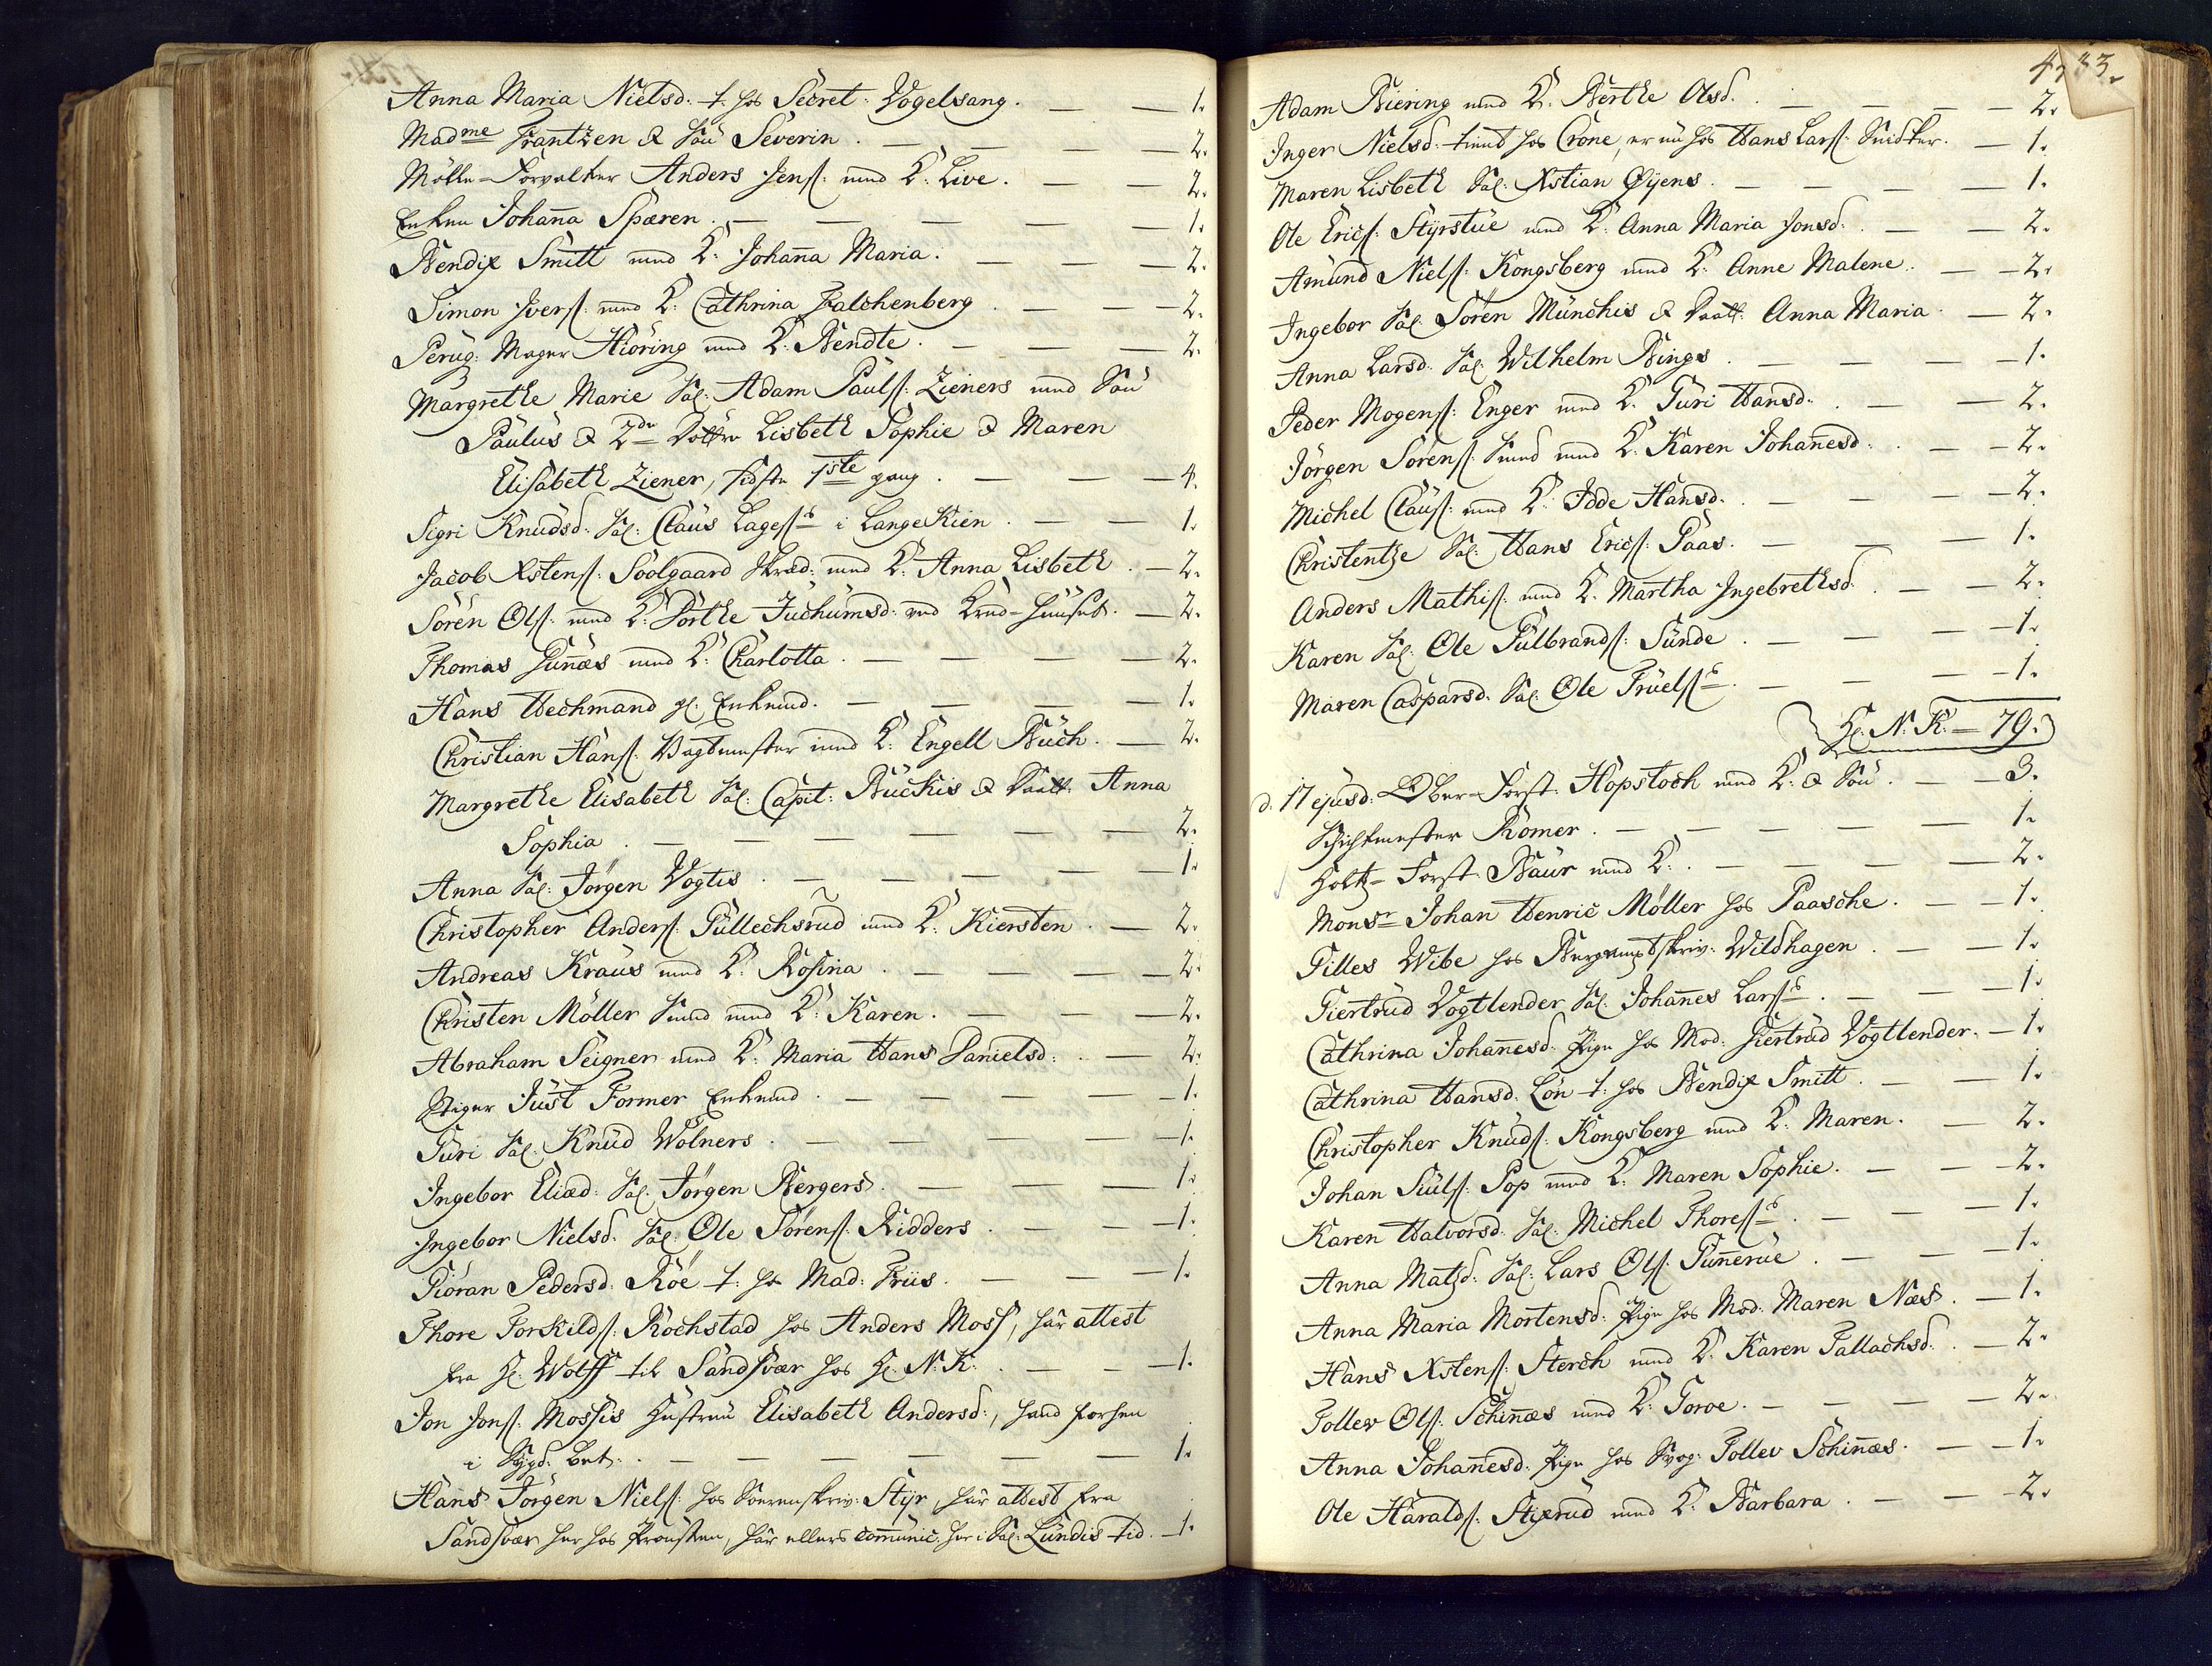 Anna Maria Nielsd. t. hos Secret: Vogelsang. — — 1.
Madme Frantzen & Søn Severin. — — — 2.
Mölle-Forvalter Anders Jens: med K: Live. — — 2.
Enken Johanna Spæren. — — — — 1.
Bendix Smitt med K: Johanna Maria. — — — 2.
Simon Ivers: med K: Cathrina Falchenberg. — — 2.
Peruq: Mager Hiöring med K: Bendte. — — — 2.
Margrethe Marie Sal: Adam Pauls: Zieners med Søn
Paulus & 2de Döttre Lisbeth Sophie & Maren
Elisabeth Ziener, sidste 1ste gang. — — — 4.
Sigri Knudsd. Sal: Claus Lagess i Lange Kien. — — 1.
Jacob Xstens: Soolgaard Skræd: med K: Anna Lisbeth. — 2.
Sören Ols: med K: Dorthe Juchumsd: ved Krud-Huuset. — 2.
Thomas Gunnæs med K: Charlotta. — — — — 2.
Hans Wechmand gl: Enkemd. — — — — 1.
Christian Hans: Vagtmester med K: Engell Buch. — 2.
Margrethe Elisabeth Sal: Capit: Buchis & Daatt: Anna
Sophia. — — — — — — 2.
Anna Sal: Jörgen Vogtis. — — — — — 1.
Christopher Anders: Gullechsrud med K: Kiersten. — 2.
Andreas Kraus med K: Rosina. — — — — 2.
Christen Möller Smed med K: Karen. — — — 2.
Abraham Seigner med K: Maria Hans Danielsd: — 2.
Stiger Just Former Enkemd. — — — — 1.
Guri Sal: Knud Wolners. — — — — — 1.
Ingebor Eliæd: Sal: Jörgen Bergers. — — — 1.
Ingebor Nielsd. Sal: Ole Sörens: Ridders. — — — 1.
Giöran Pedersd. Röe t: hos Mad: Friis. — — — 1.
Thore Torkilds: Rochstad hos Anders Moss, har attest
fra Hl: Wolff til Sandsvær hos Hl. N: K: — — 1.
Jon Jons: Mossis Hustrue Elisabeth Andersd:, hand forhen
i Bygd: Bet: — — — — — — 1.
Hans Jörgen Niels: hos Sorenskriv: Styr, har attest fra
Sandsvær her hos Provsten, har ellers communic: her i Sal: Lundis tid. — 1.
433.
Adam Biering med K: Berthe Olsd. — — — 2.
Inger Nielsd. tient hos Crone, er nu hos Hans Lars: Snidker. — 1.
Maren Lisbeth Sal: Xstian Øyens. — — — — 1.
Ole Erics: Styrstue med K: Anna Maria Jonsd. — — 2.
Amund Niels: Kongsberg med K: Anne Malene. — — 2.
Ingebor Sal: Sören Münchis & Daatt: Anna Maria. — 2.
Anna Larsd. Sal: Wilhelm Bings. — — — — 1.
Peder Mogens: Enger med K: Guri Hansd. — — 2.
Jörgen Sorens: Smed med K: Karen Johanesd. — — 2.
Michel Claus: med K: Idde Hansd. — — — 2.
Christentze Sal: Hans Erics: Paas. — — — 1.
Anders Mathis: med K: Martha Ingebrethsd. — — 2.
Karen Sal: Ole Gulbrands: Sunde. — — — — 1.
Maren Caspersd. Sal: Ole Truelss. — — — — 1.
Hl: N. K: — 79.
d. 17 ejusd: Ober-Forst: Hopstoch med K: & Søn. — — 3.
Schichtmester Römer. — — — — — 1.
Holtz-Forst: Baur med K: — — — — 2.
Monsr Johan Henric Möller hos Paasche. — — 1.
Gilles Wibe hos Bergamtskriv: Wildhagen. — — 1.
Giertrud Vogtlender Sal: Johannes Larss. — — — 1.
Cathrina Johannesd. Pige hos Mad: Giertrud Vogtlender. — 1.
Cathrina Hansd. Lön t: hos Bendix Smitt. — — 1.
Christopher Knuds: Kongsberg med K: Maren. — 2.
Johan Siuls: Pop med K: Maren Sophie. — — 2.
Karen Halvorsd. Sal: Michel Thoress. — — — 1.
Anna Matzd: Sal: Lars Ols: Gunnerue. — — — 1.
Anna Maria Mortensd. Pige hos Mad: Maren Næs. — 1.
Hans Xstens: Sterch med K: Karen Tallachsd. — 2.
Tollev Ols: Schinnæs med K: Torve. — — — 2.
Anna Johannesd. Pige hos Svog: Tollev Schinnæs. — — 1.
Ole Haralds: Stixrud med K: Barbara. — — — 2.